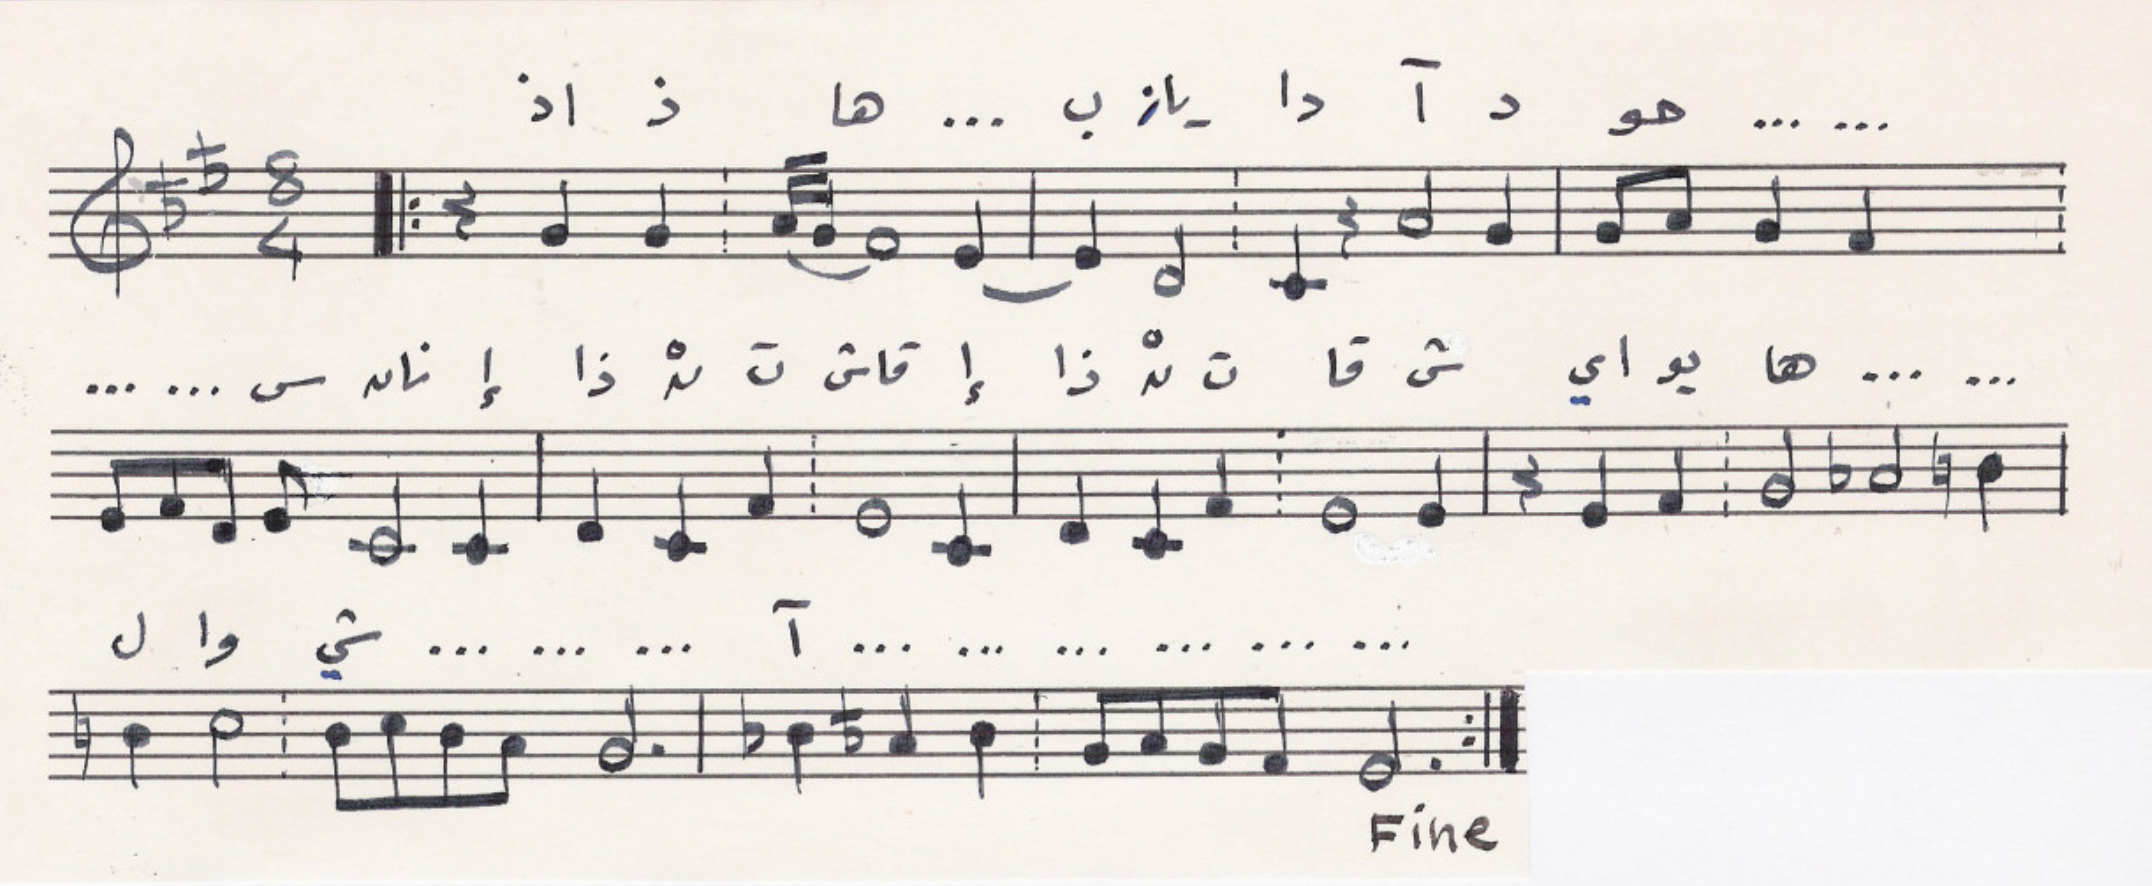 اذ ذ ها ... ب ياز دا آ د حو ... ...
8
4
... ... س نانہ إ ذا نہْ ت قاش إ ذا نہْ ت قا ش اي يو ها ... ...
ل وا شي ... ... ... آ ... ... ... ... ... ...
Fine